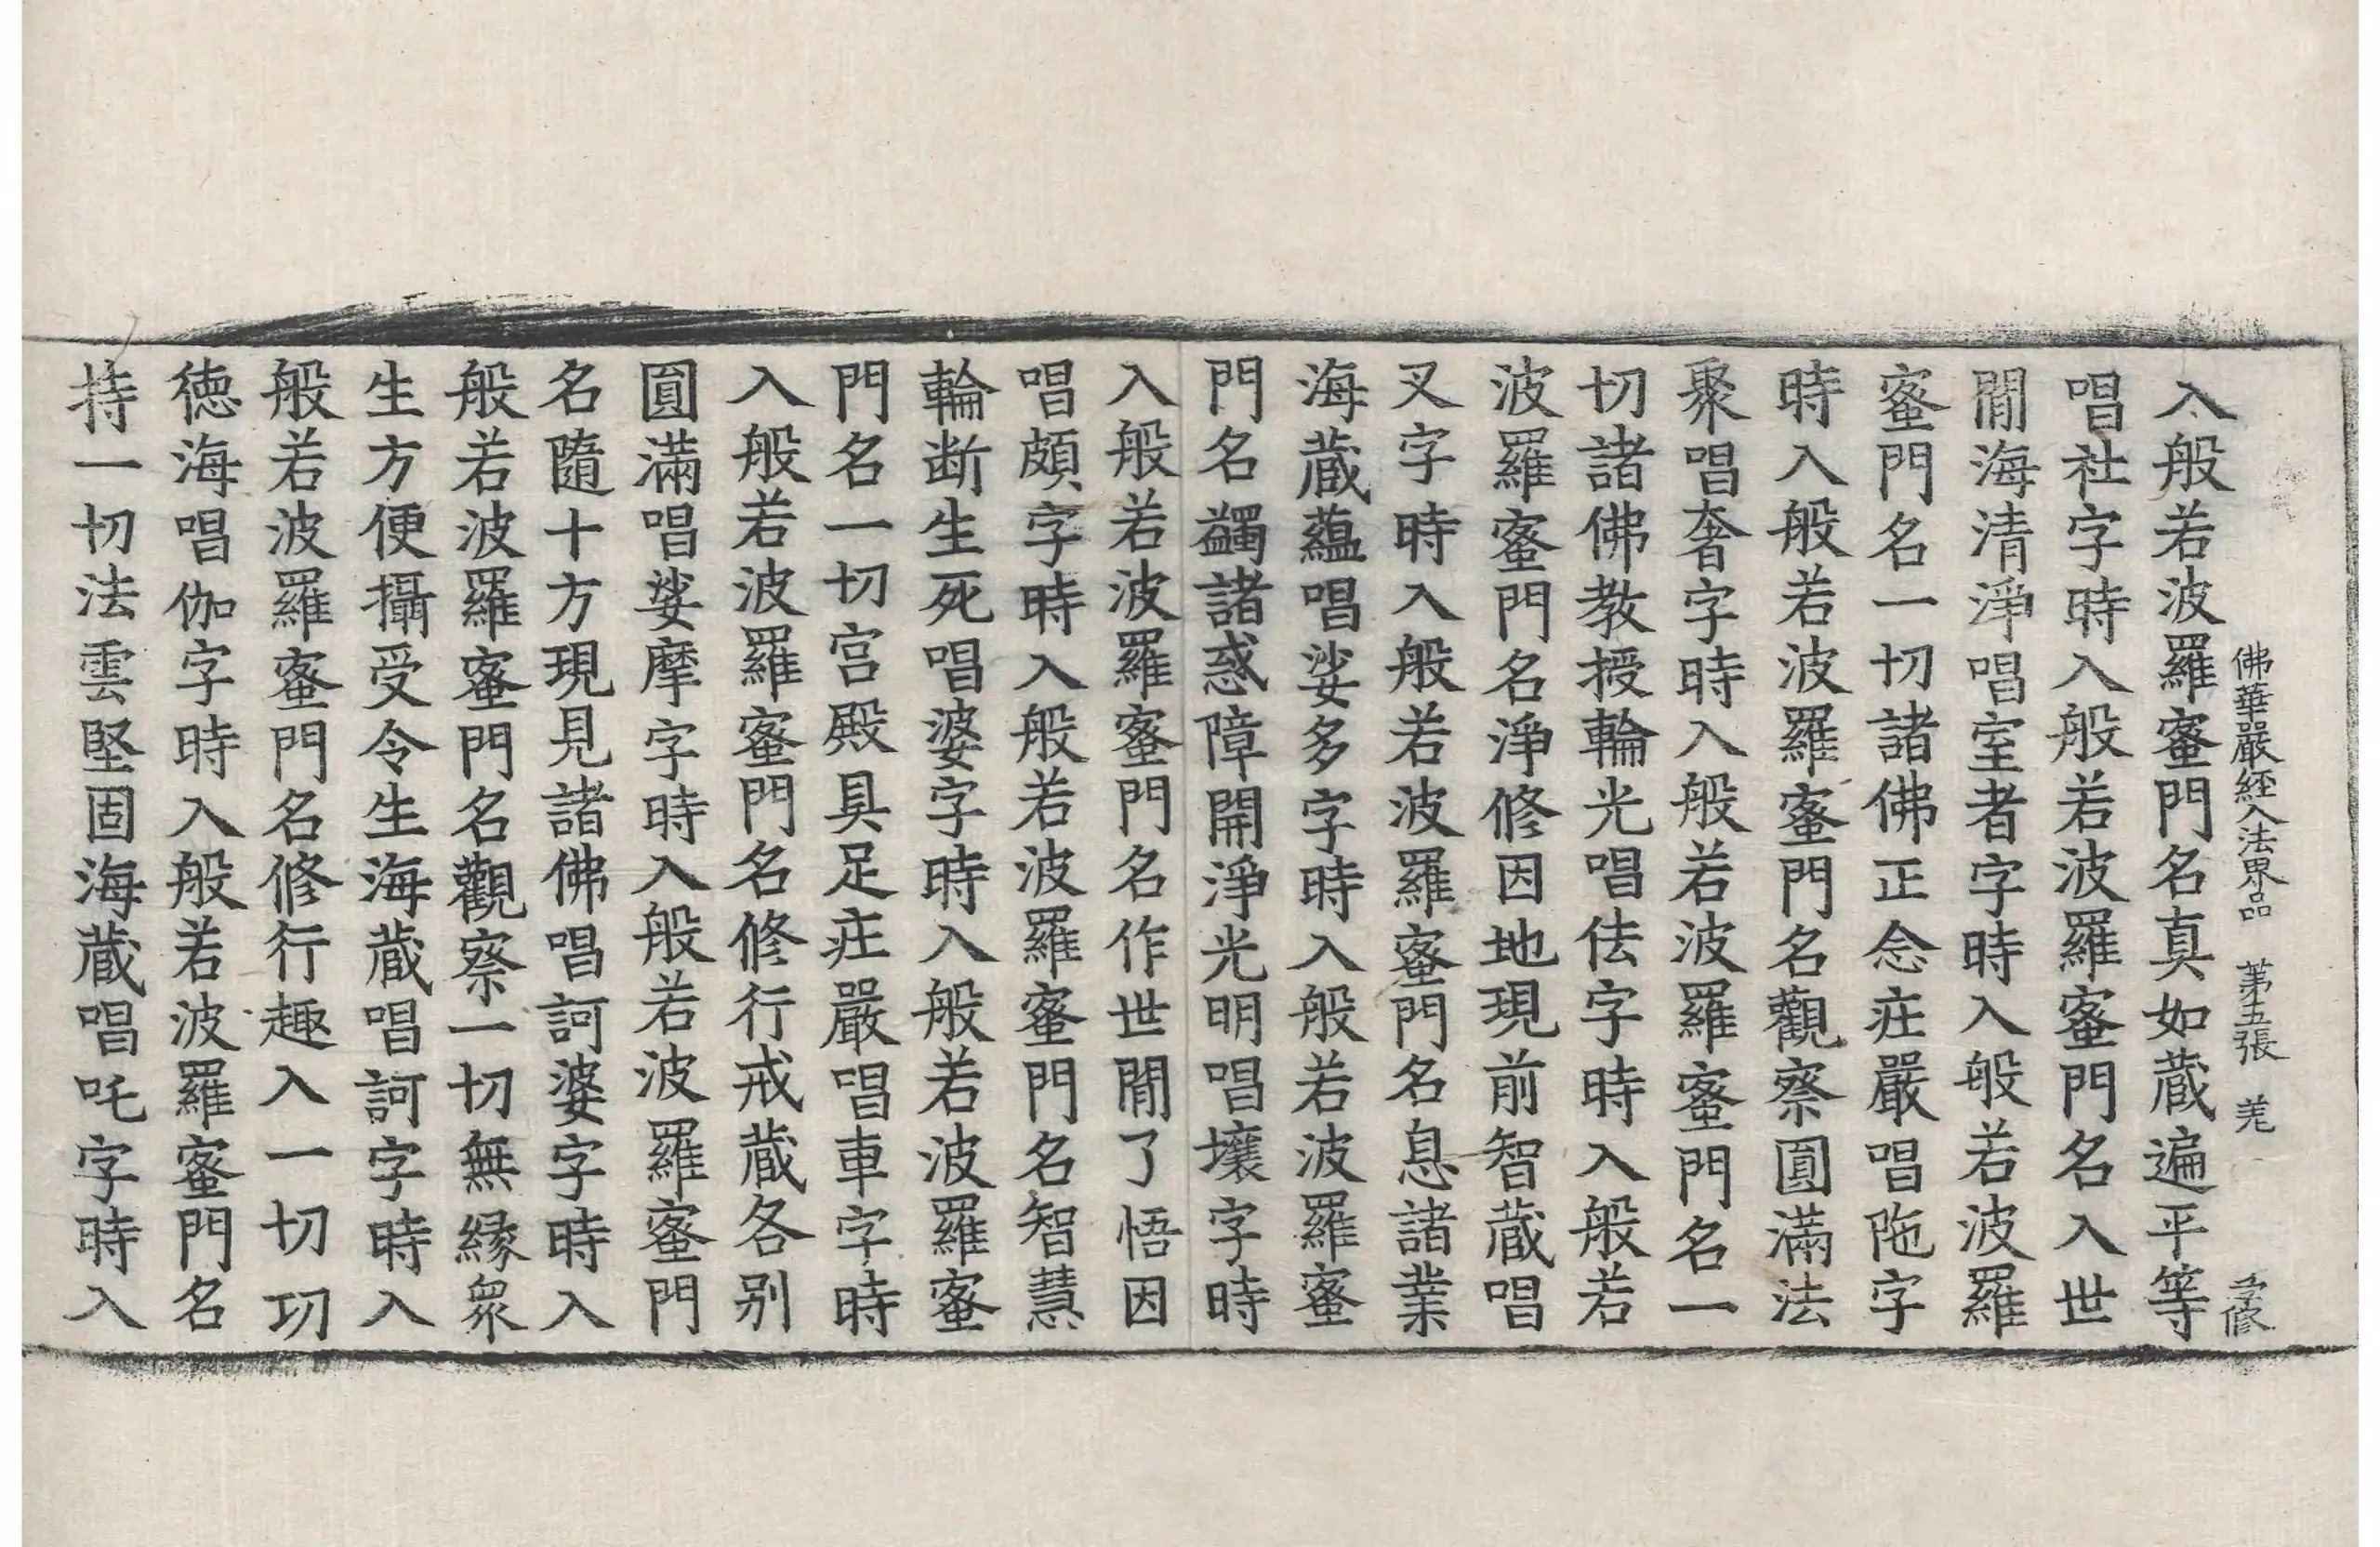 佛華嚴經入法界品 第五張 羌 孝修
入般若波羅蜜門名真如藏遍平等
唱社字時入般若波羅蜜門名入世
間海清淨唱室者字時入般若波羅
蜜門名一切諸佛正念莊嚴唱陁字
時入般若波羅蜜門名觀察圓滿法
聚唱奢字時入般若波羅蜜門名一
切諸佛教授輪光唱佉字時入般若
波羅蜜門名淨修因地現前智藏唱
叉字時入般若波羅蜜門名息諸業
海藏蘊唱娑多字時入般若波羅蜜
門名蠲諸惑障開淨光明唱壤字時
入般若波羅蜜門名作世間了悟因
唱頗字時入般若波羅蜜門名智慧
輪断生死唱婆字時入般若波羅蜜
門名一切宫殿具足莊嚴唱車字時
入般若波羅蜜門名修行戒藏各別
圓滿唱娑摩字時入般若波羅蜜門
名隨十方現見諸佛唱訶婆字時入
般若波羅蜜門名觀察一切無緣衆
生方便攝受令生海藏唱訶字時入
般若波羅蜜門名修行趣入一切功
德海唱伽字時入般若波羅蜜門名
持一切法雲堅固海藏唱吒字時入